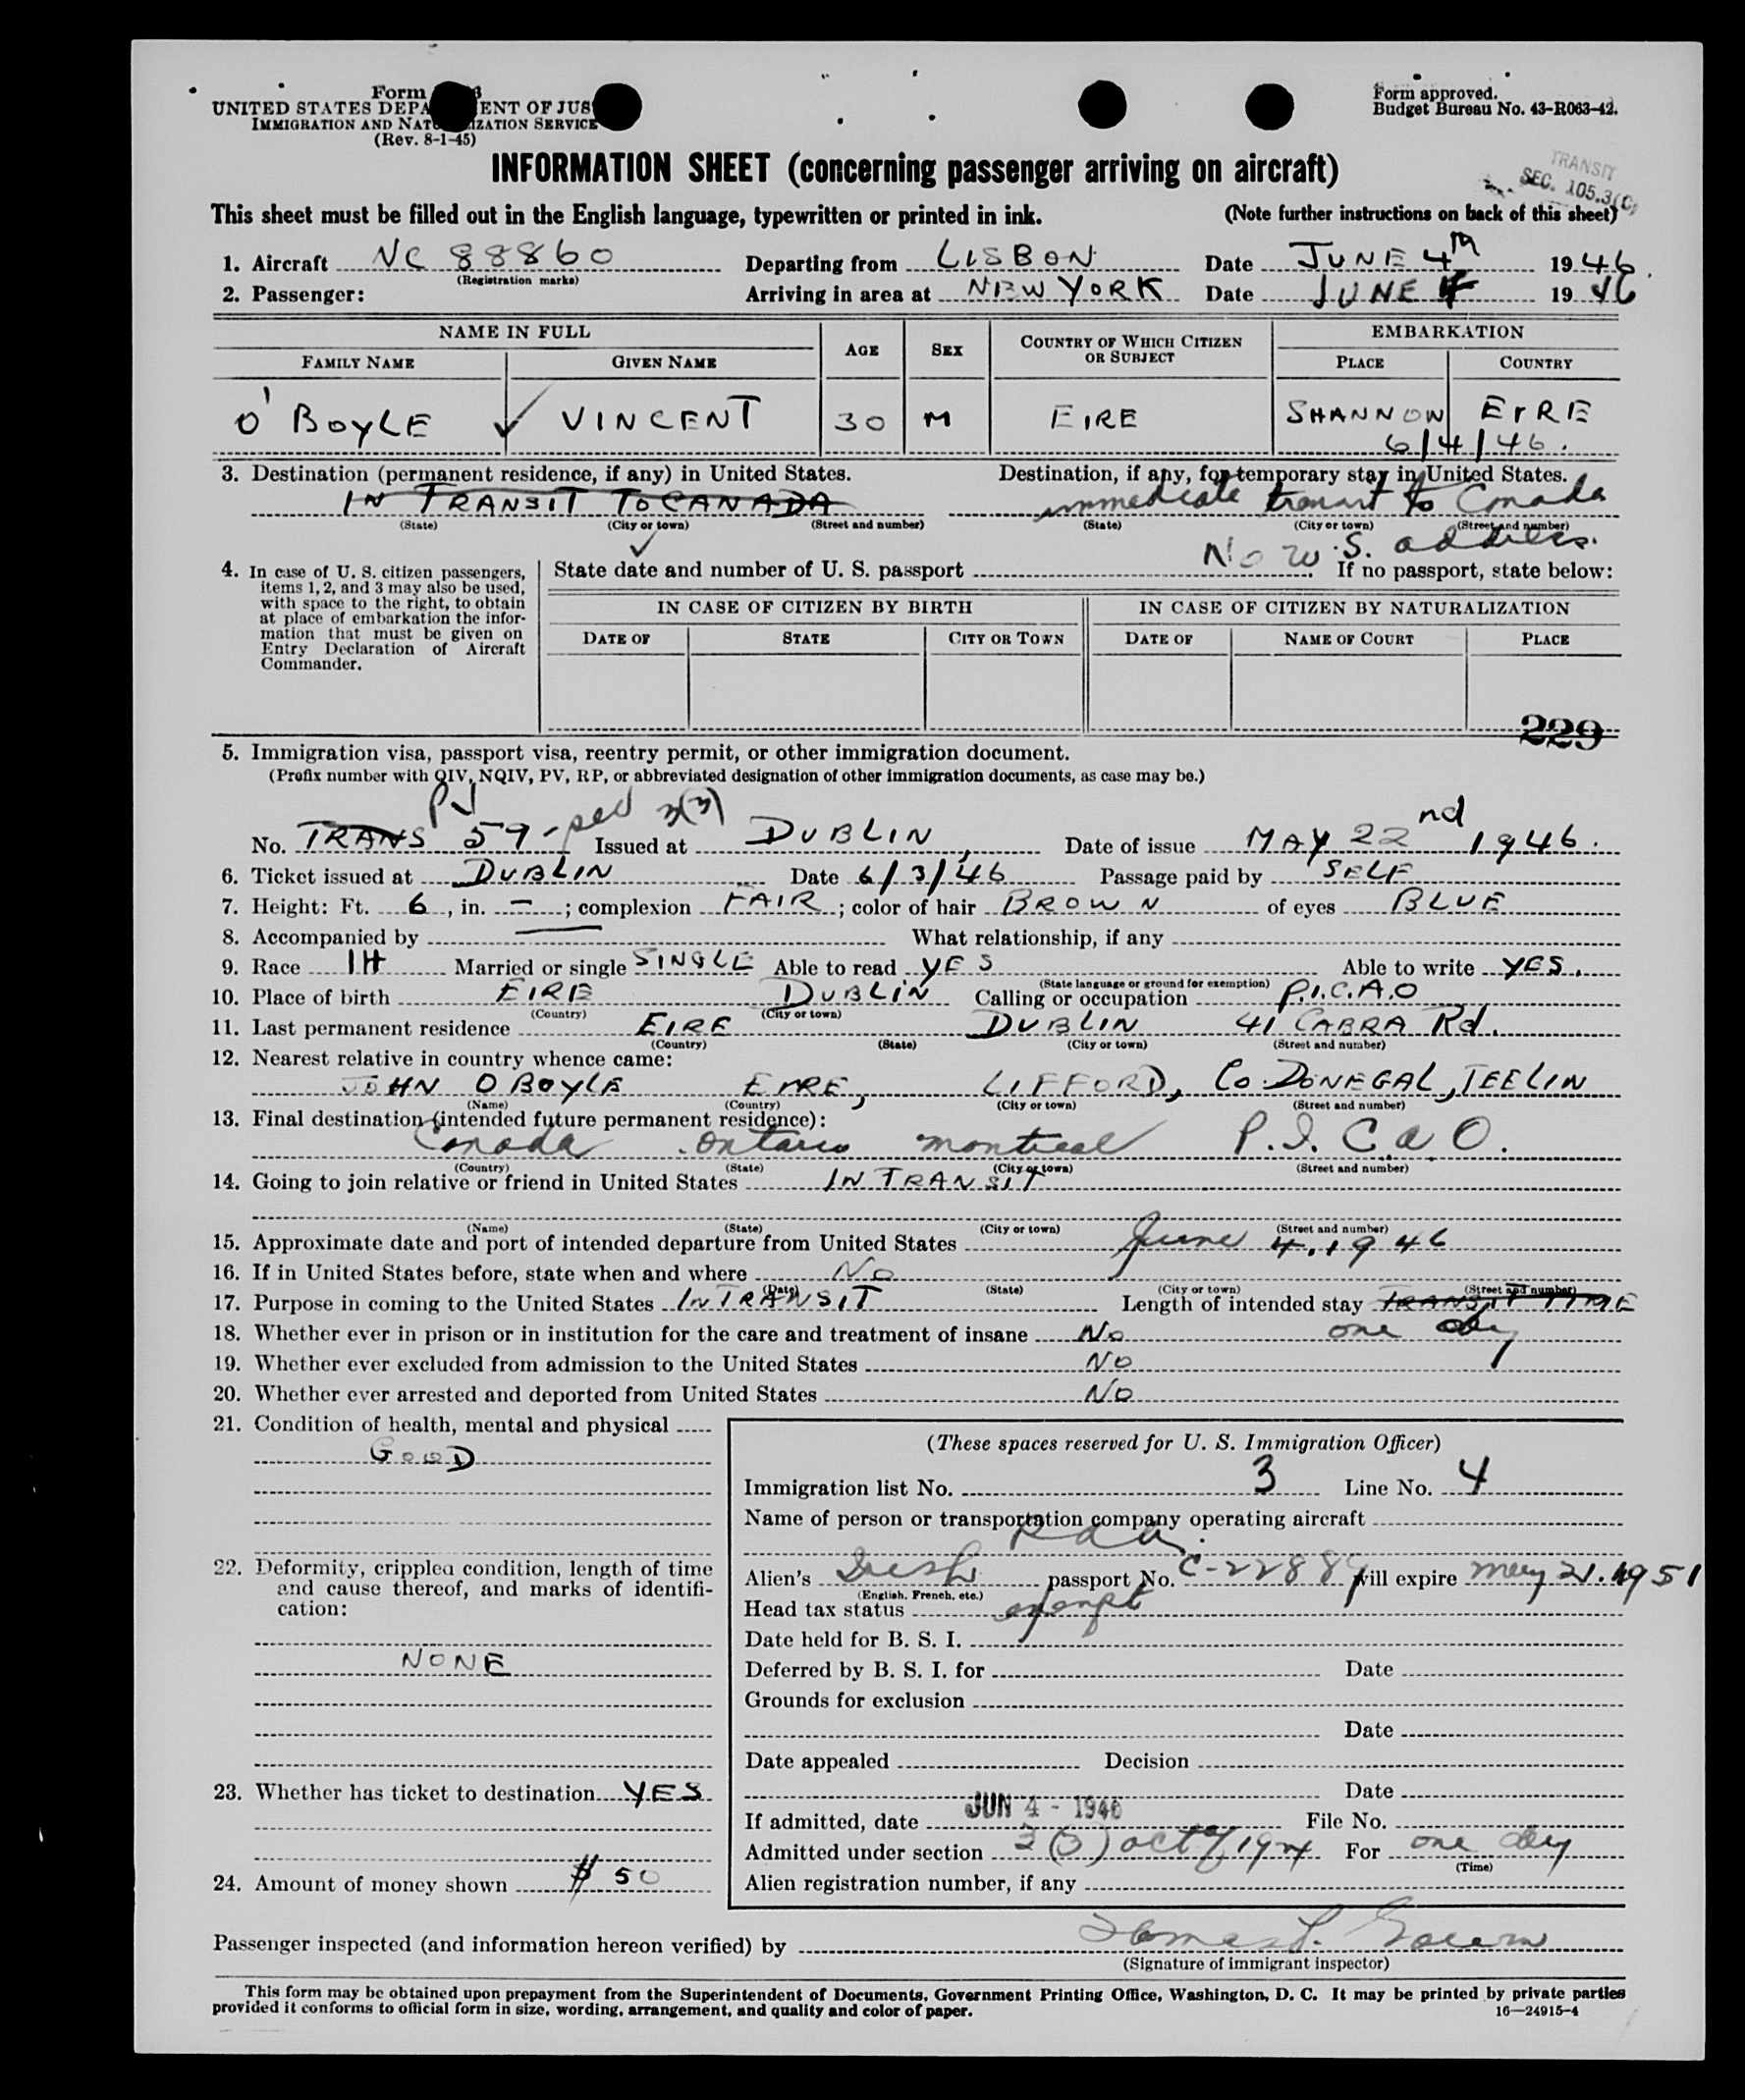 Form
UNITED STATES DEPA ENT OF JUS
IMMIGRATION AND NAT IZATION SERVICE
(Rev. 8-1-45)
Form approved.
Budget Bureau No. 43-R063-42.
INFORMATION SHEET (concerning passenger arriving on aircraft)
TRANSIT
SEC. 105.3(C)
This sheet must be filled out in the English language, typewritten or printed in ink. (Note further instructions on back of this sheet)
1. Aircraft NC 88860 Departing from LISBON Date JUNE 4th 1946.
(Registration marks)
2. Passenger: Arriving in area at NEW YORK Date JUNE 4 1946
NAME IN FULL AGE SEX COUNTRY OF WHICH CITIZEN OR SUBJECT EMBARKATION
FAMILY NAME GIVEN NAME PLACE COUNTRY
O'BOYLE ✓ VINCENT 30 M EIRE SHANNON EIRE
6/4/46.
3. Destination (permanent residence, if any) in United States. Destination, if any, for temporary stay in United States.
IN TRANSIT TO CANADA immediate transit to Canada
(State) (City or town) (Street and number) (State) (City or town) (Street and number)
✓ No U.S. address.
4. In case of U. S. citizen passengers, items 1, 2, and 3 may also be used, with space to the right, to obtain at place of embarkation the information that must be given on Entry Declaration of Aircraft Commander.
State date and number of U. S. passport If no passport, state below:
IN CASE OF CITIZEN BY BIRTH IN CASE OF CITIZEN BY NATURALIZATION
DATE OF STATE CITY OR TOWN DATE OF NAME OF COURT PLACE
229
5. Immigration visa, passport visa, reentry permit, or other immigration document.
(Prefix number with QIV, NQIV, PV, RP, or abbreviated designation of other immigration documents, as case may be.)
PV
No. TRANS 59 - sec 3(3) Issued at DUBLIN, Date of issue MAY 22nd 1946.
6. Ticket issued at DUBLIN Date 6/3/46 Passage paid by SELF
7. Height: Ft. 6, in. —; complexion FAIR; color of hair BROWN of eyes BLUE
8. Accompanied by — What relationship, if any
9. Race IH Married or single SINGLE Able to read YES Able to write YES.
(State language or ground for exemption)
10. Place of birth EIRE DUBLIN Calling or occupation P.I.C.A.O
(Country) (City or town)
11. Last permanent residence EIRE DUBLIN 41 CABRA Rd.
(Country) (State) (City or town) (Street and number)
12. Nearest relative in country whence came:
JOHN O BOYLE EIRE, LIFFORD, Co. DONEGAL, TEELIN
(Name) (Country) (City or town) (Street and number)
13. Final destination (intended future permanent residence):
Canada Ontario montreal P.I.C.a.O.
(Country) (State) (City or town) (Street and number)
14. Going to join relative or friend in United States IN TRANSIT
(Name) (State) (City or town) (Street and number)
15. Approximate date and port of intended departure from United States June 4, 1946
16. If in United States before, state when and where No
(Date) (State) (City or town) (Street and number)
17. Purpose in coming to the United States IN TRANSIT Length of intended stay TRANSIT TIME
18. Whether ever in prison or in institution for the care and treatment of insane No one day
19. Whether ever excluded from admission to the United States NO
20. Whether ever arrested and deported from United States NO
21. Condition of health, mental and physical
GOOD
22. Deformity, crippled condition, length of time and cause thereof, and marks of identification:
NONE
23. Whether has ticket to destination YES
24. Amount of money shown $50
(These spaces reserved for U. S. Immigration Officer)
Immigration list No. 3 Line No. 4
Name of person or transportation company operating aircraft
Alien's Irish passport No. C-22889 will expire May 21. 1951
(English, French, etc.)
Head tax status exempt
Date held for B. S. I.
Deferred by B. S. I. for Date
Grounds for exclusion
Date
Date appealed Decision
Date
If admitted, date JUN 4 - 1946 File No.
Admitted under section 3(3) act of 1924 For one day
(Time)
Alien registration number, if any
Passenger inspected (and information hereon verified) by
(Signature of immigrant inspector)
This form may be obtained upon prepayment from the Superintendent of Documents, Government Printing Office, Washington, D. C. It may be printed by private parties
provided it conforms to official form in size, wording, arrangement, and quality and color of paper. 16—24915-4